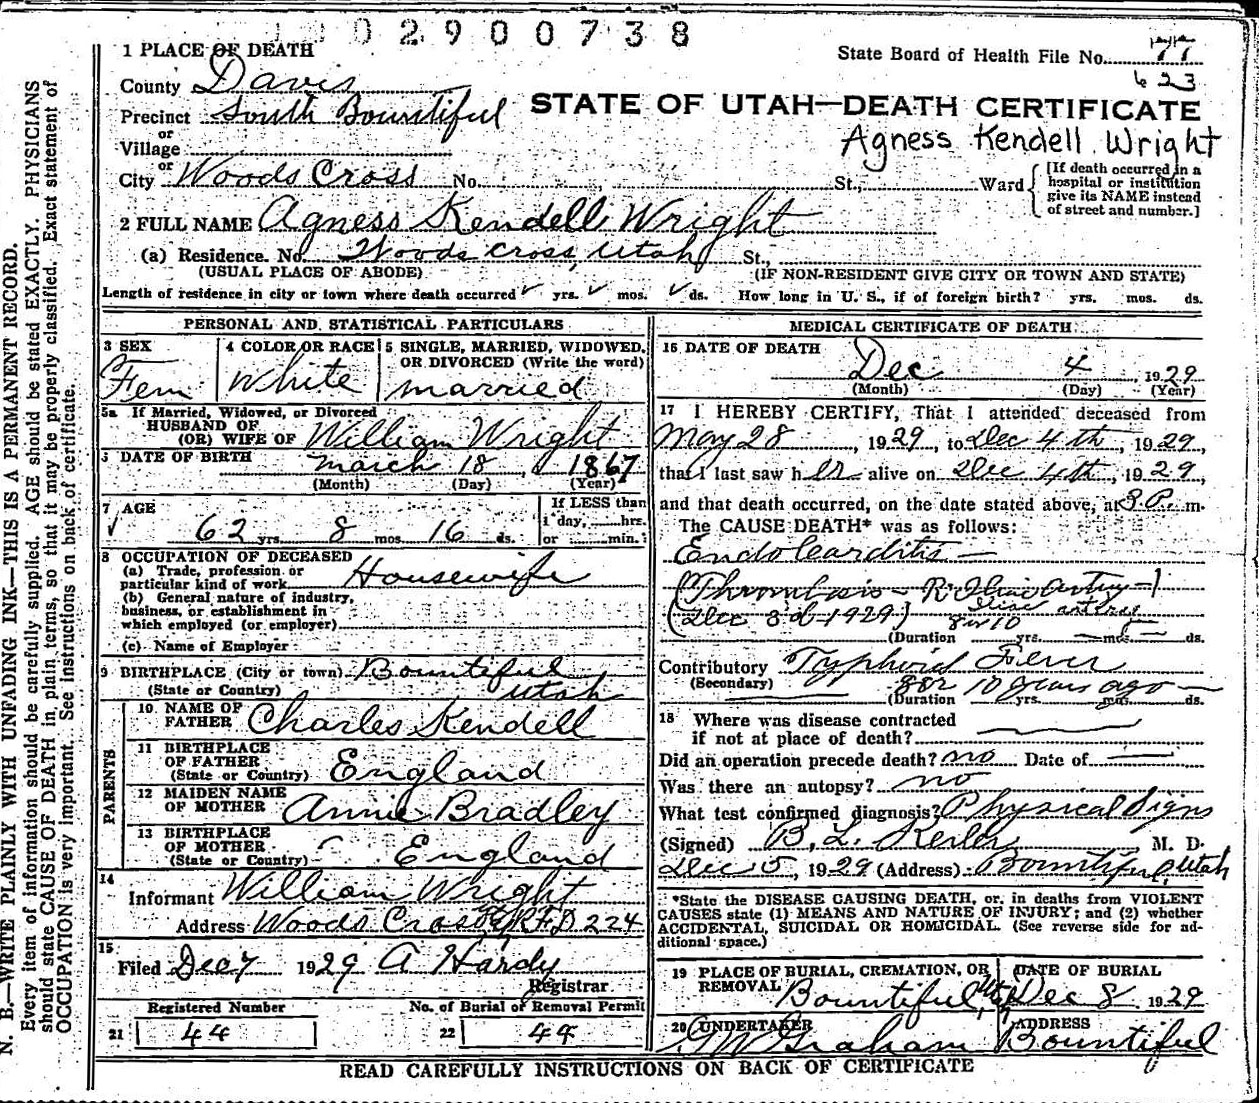 02900738
1 PLACE OF DEATH
State Board of Health File No. 77
623
County Davis
Precinct South Bountiful
STATE OF UTAH—DEATH CERTIFICATE
or
Village
Agness Kendell Wright
or
City Woods Cross No. St., Ward
[If death occurred in a
hospital or institution
give its NAME instead
of street and number.]
2 FULL NAME Agness Kendell Wright
(a) Residence. No. Woods Cross, Utah St.,
(USUAL PLACE OF ABODE) (IF NON-RESIDENT GIVE CITY OR TOWN AND STATE)
Length of residence in city or town where death occurred yrs. mos. ds. How long in U. S., if of foreign birth? yrs. mos. ds.
PERSONAL AND STATISTICAL PARTICULARS
3 SEX
Fem
4 COLOR OR RACE
White
5 SINGLE, MARRIED, WIDOWED,
OR DIVORCED (Write the word)
married
5a If Married, Widowed, or Divorced
HUSBAND OF
(OR) WIFE OF William Wright
6 DATE OF BIRTH March 18, 1867
(Month) (Day) (Year)
7 AGE
62 yrs. 8 mos. 16 ds.
If LESS than
1 day, hrs.
or min.
8 OCCUPATION OF DECEASED
(a) Trade, profession or
particular kind of work Housewife
(b) General nature of industry,
business, or establishment in
which employed (or employer)
(c) Name of Employer
9 BIRTHPLACE (City or town) Bountiful
(State or Country) Utah
PARENTS
10 NAME OF
FATHER Charles Kendell
11 BIRTHPLACE
OF FATHER
(State or Country) England
12 MAIDEN NAME
OF MOTHER Annie Bradley
13 BIRTHPLACE
OF MOTHER
(State or Country) England
14
Informant William Wright
Address Woods Cross R.F.D 224
15
Filed Dec 7 1929 A Hardy
Registrar
Registered Number No. of Burial or Removal Permit
21 44 22 44
MEDICAL CERTIFICATE OF DEATH
16 DATE OF DEATH
Dec 4, 1929
(Month) (Day) (Year)
17 I HEREBY CERTIFY, That I attended deceased from
May 28, 1929, to Dec 4th, 1929,
that I last saw her alive on Dec 4th, 1929,
and that death occurred, on the date stated above, at 3 P. m.
The CAUSE DEATH* was as follows:
Endocarditis —
(Thrombosis — R. Iliac artery —)
(Dec 3d — 1929) iliac artery
8 or 10
(Duration yrs. mos. ds.
Contributory Typhoid Fever
(Secondary) 8 or 10 years ago —
(Duration yrs. mos. ds.
18 Where was disease contracted
if not at place of death?
Did an operation precede death? no Date of
Was there an autopsy? no
What test confirmed diagnosis? Physical Signs
(Signed) B. L. M. D.
Dec 5, 1929 (Address) Bountiful, Utah
*State the DISEASE CAUSING DEATH, or, in deaths from VIOLENT
CAUSES state (1) MEANS AND NATURE OF INJURY; and (2) whether
ACCIDENTAL, SUICIDAL OR HOMICIDAL. (See reverse side for ad-
ditional space.)
19 PLACE OF BURIAL, CREMATION, OR
REMOVAL Bountiful, Utah
DATE OF BURIAL
Dec 8, 1929
20 UNDERTAKER
Graham
ADDRESS
Bountiful
READ CAREFULLY INSTRUCTIONS ON BACK OF CERTIFICATE
N. B.—WRITE PLAINLY WITH UNFADING INK—THIS IS A PERMANENT RECORD.
Every item of information should be carefully supplied. AGE should be stated EXACTLY. PHYSICIANS
should state CAUSE OF DEATH in plain terms, so that it may be properly classified. Exact statement of
OCCUPATION is very important. See instructions on back of certificate.